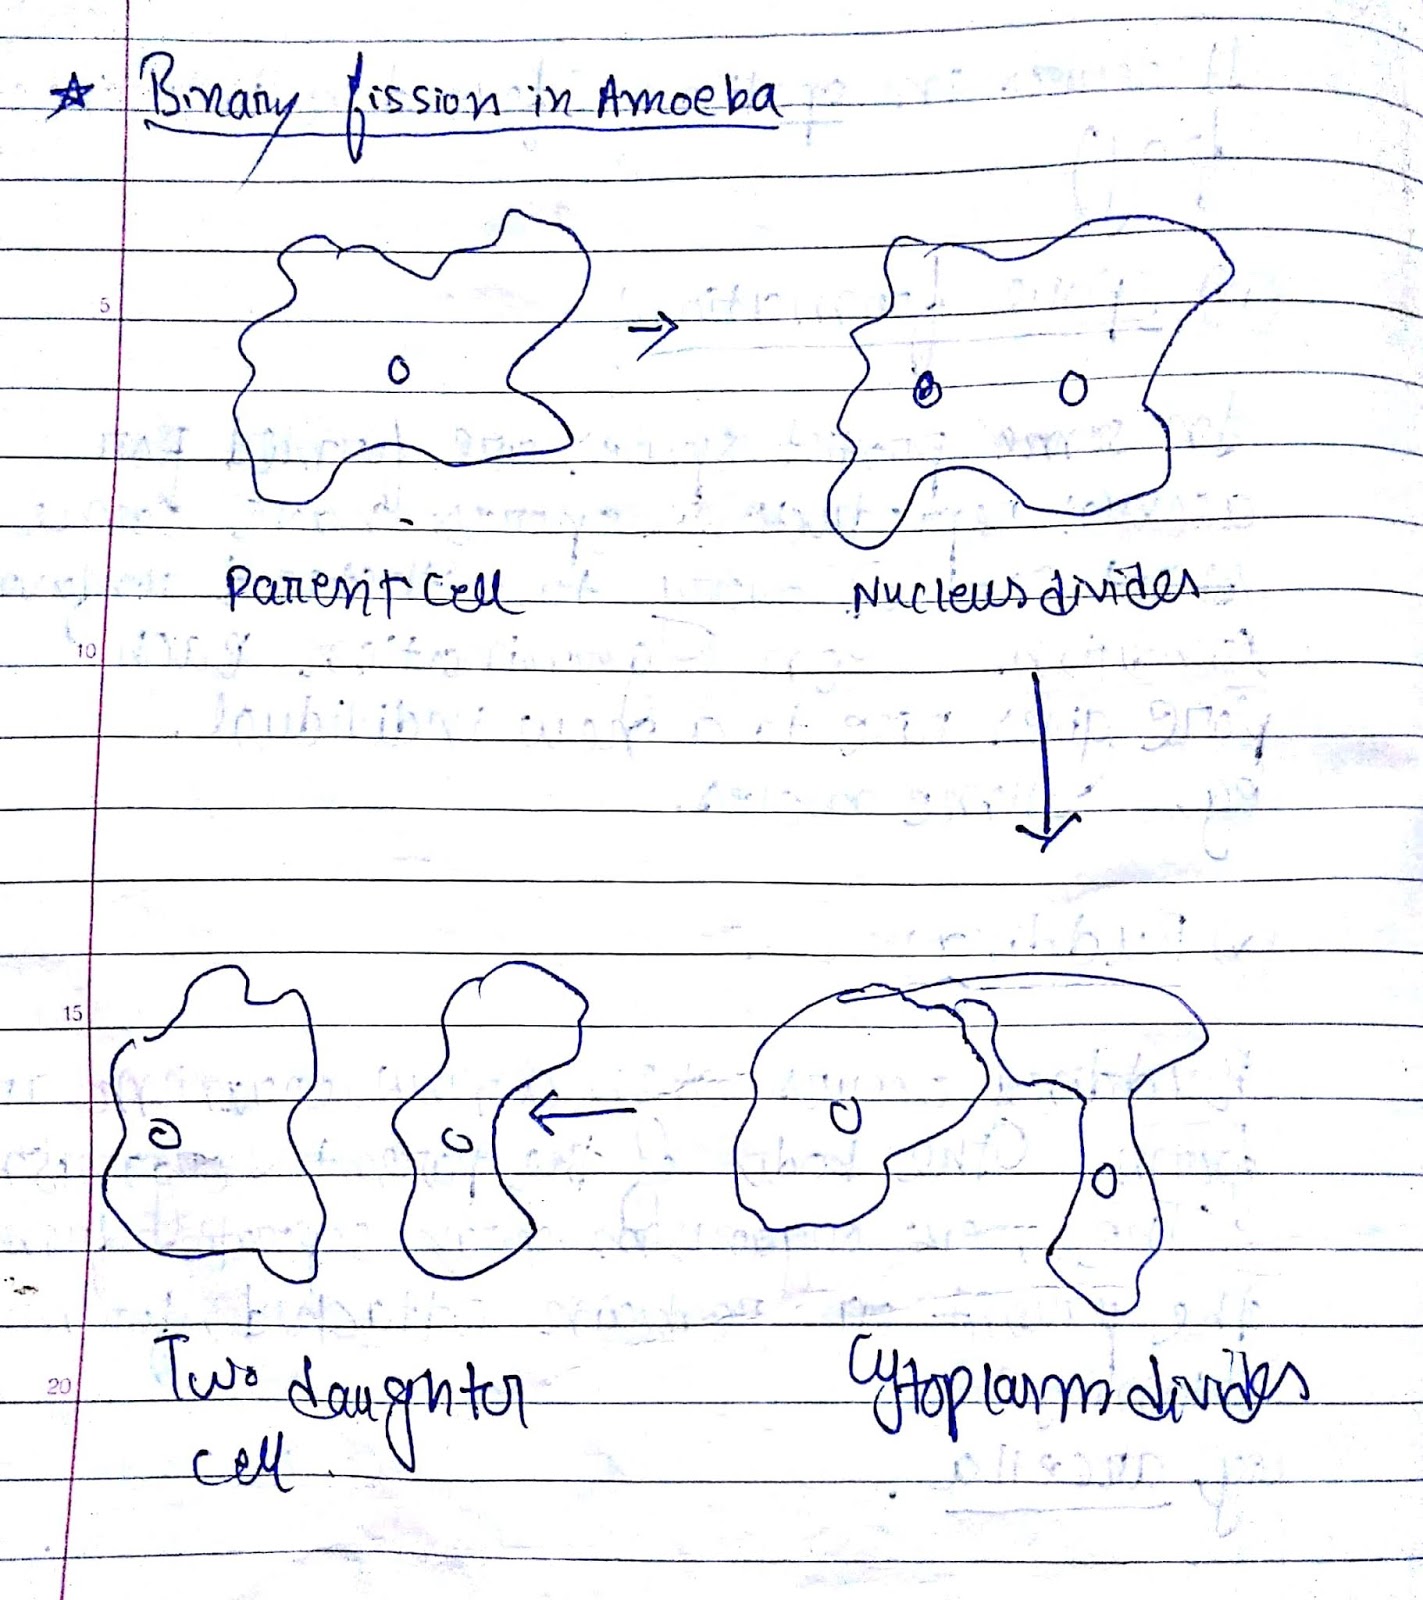 ☆ Binary fission in Amoeba
5
Parent cell
Nucleus divides
10
15
Two daughter
cell
Cytoplasm divides
20